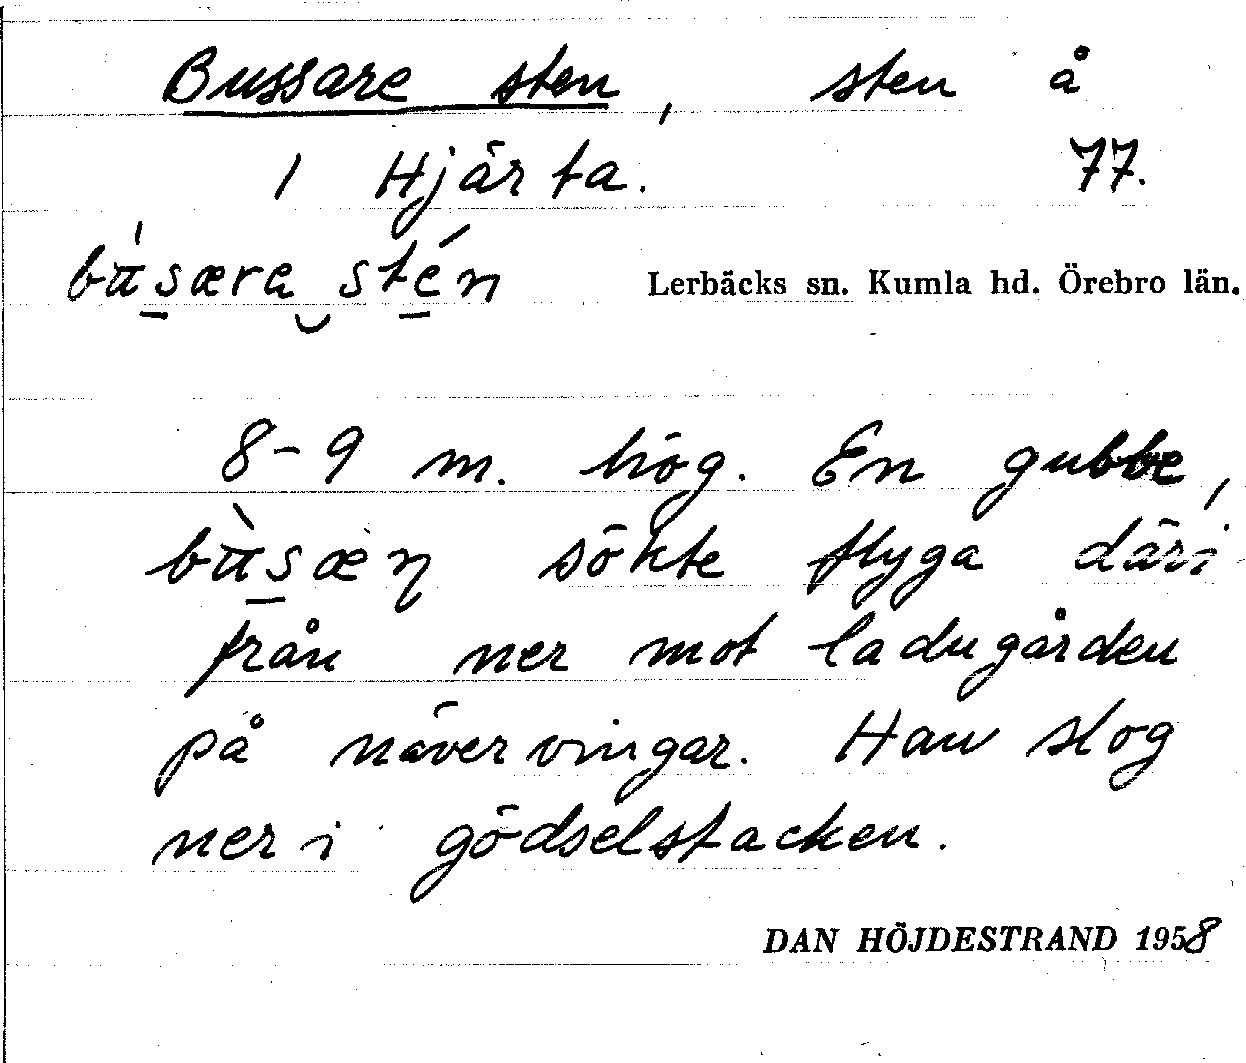 Bussare sten, sten å
1 Hjärta. 77.
bùsæra stén Lerbäcks sn. Kumla hd. Örebro län.
8-9 m. hög. En gubbe,
bùsæn sökte flyga däri
från ner mot ladugården
på nävervingar. Han slog
ner i gödselstacken.
DAN HÖJDESTRAND 1958